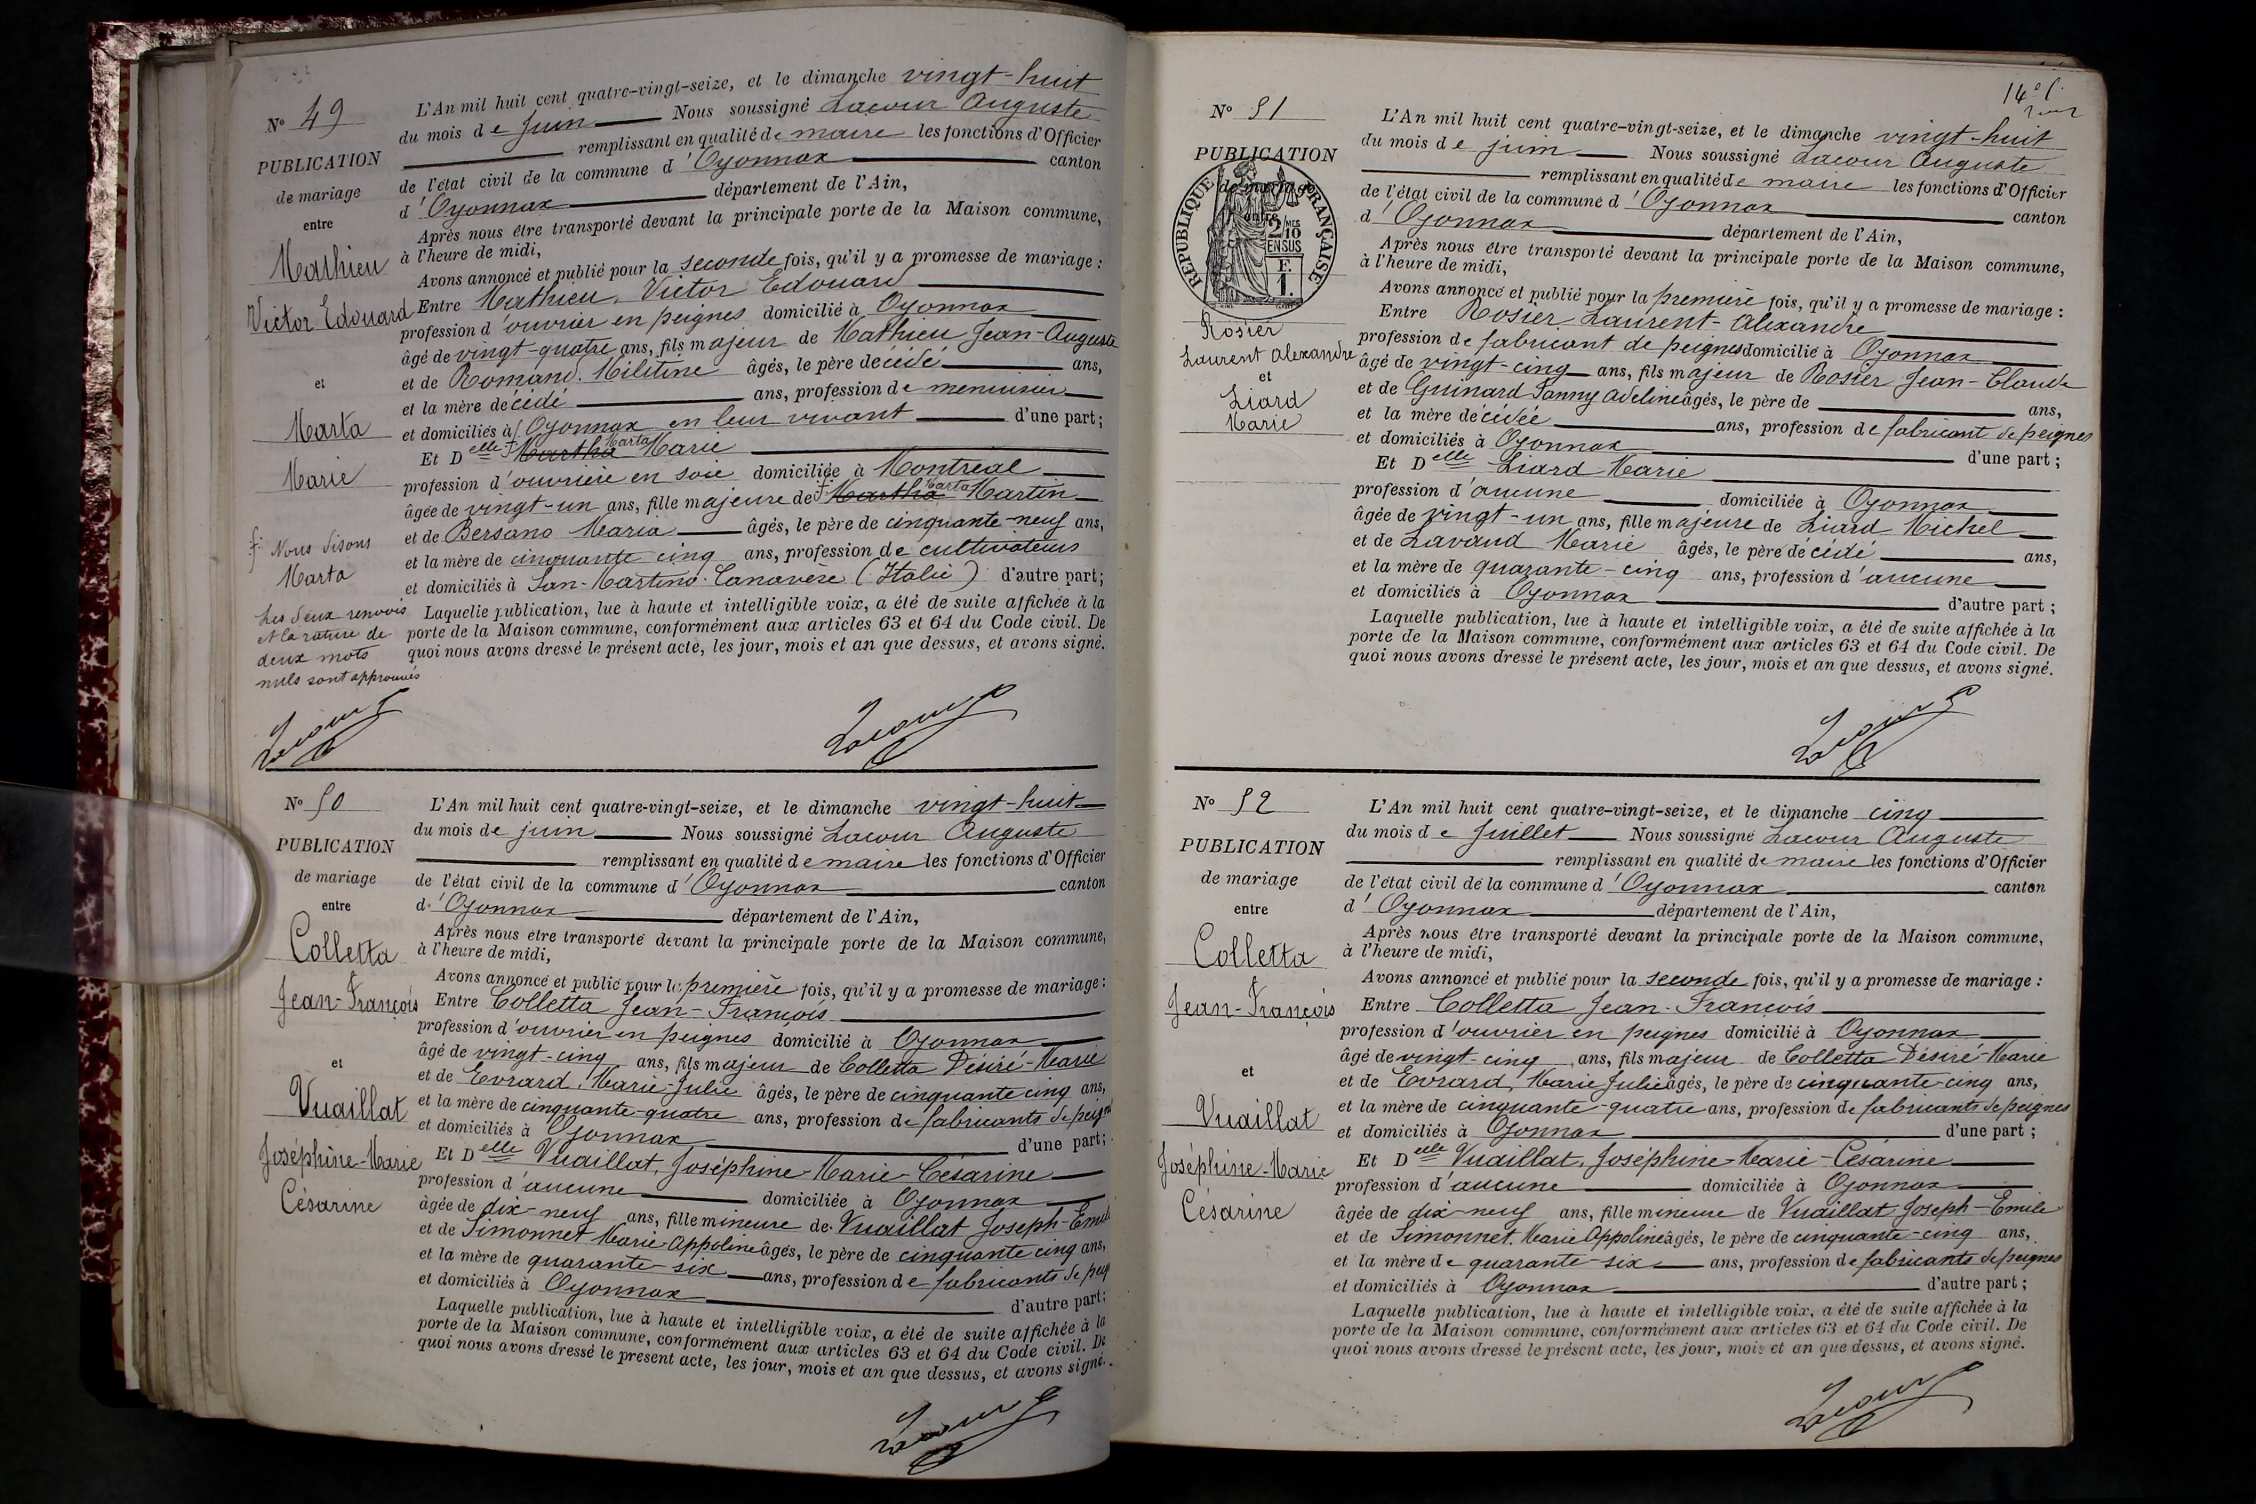 N° 49
PUBLICATION
de mariage
entre
Mathieu
Victor Edouard
et
Marta
Marie
f Nous disons
Marta
Les deux renvois
et la rature de
deux mots
nuls sont approuvés
Lacour
L'An mil huit cent quatre-vingt-seize, et le dimanche vingt-huit
du mois de juin Nous soussigné Lacour Auguste
remplissant en qualité de maire les fonctions d'Officier
de l'état civil de la commune d'Oyonnax canton
d'Oyonnax département de l'Ain,
Après nous être transporté devant la principale porte de la Maison commune,
à l'heure de midi,
Avons annoncé et publié pour la seconde fois, qu'il y a promesse de mariage :
Entre Mathieu, Victor Edouard
profession d'ouvrier en peignes domicilié à Oyonnax
âgé de vingt-quatre ans, fils majeur de Mathieu Jean-Auguste
et de Romand, Militine âgés, le père décédé ans,
et la mère décédé ans, profession de menuisier
et domiciliés à Oyonnax en leur vivant d'une part ;
Et Delle f Martha Marta Marie
profession d'ouvrière en soie domiciliée à Montréal
âgée de vingt-un ans, fille majeure de f Martha Marta Martin
et de Bersano Maria âgés, le père de cinquante-neuf ans,
et la mère de cinquante cinq ans, profession de cultivateurs
et domiciliés à San-Martino-Canavèse (Italie) d'autre part ;
Laquelle publication, lue à haute et intelligible voix, a été de suite affichée à la
porte de la Maison commune, conformément aux articles 63 et 64 du Code civil. De
quoi nous avons dressé le présent acte, les jour, mois et an que dessus, et avons signé.
Lacour
N° 50
PUBLICATION
de mariage
entre
Colletta
Jean-François
et
Vuaillat
Joséphine-Marie
Césarine
L'An mil huit cent quatre-vingt-seize, et le dimanche vingt-huit
du mois de juin Nous soussigné Lacour Auguste
remplissant en qualité de maire les fonctions d'Officier
de l'état civil de la commune d'Oyonnax canton
d'Oyonnax département de l'Ain,
Après nous être transporté devant la principale porte de la Maison commune,
à l'heure de midi,
Avons annoncé et publié pour la première fois, qu'il y a promesse de mariage :
Entre Colletta Jean-François
profession d'ouvrier en peignes domicilié à Oyonnax
âgé de vingt-cinq ans, fils majeur de Colletta Désiré-Marie
et de Evrard, Marie-Julie âgés, le père de cinquante cinq ans,
et la mère de cinquante-quatre ans, profession de fabricants de peign
et domiciliés à Oyonnax d'une part ;
Et Delle Vuaillat, Joséphine-Marie-Césarine
profession d'aucune domiciliée à Oyonnax
âgée de dix-neuf ans, fille mineure de Vuaillat Joseph-Emile
et de Simonnet Marie-Appoline âgés, le père de cinquante cinq ans,
et la mère de quarante-six ans, profession de fabricants de peig
et domiciliés à Oyonnax d'autre part ;
Laquelle publication, lue à haute et intelligible voix, a été de suite affichée à la
porte de la Maison commune, conformément aux articles 63 et 64 du Code civil. De
quoi nous avons dressé le présent acte, les jour, mois et an que dessus, et avons signé.
Lacour
14e f.
N° 51
PUBLICATION
de mariage
entre
RÉPUBLIQUE FRANÇAISE
2/10
EN SUS
F.
1.
Rosier
Laurent Alexandre
et
Liard
Marie
L'An mil huit cent quatre-vingt-seize, et le dimanche vingt-huit
du mois de juin Nous soussigné Lacour Auguste
remplissant en qualité de maire les fonctions d'Officier
de l'état civil de la commune d'Oyonnax canton
d'Oyonnax département de l'Ain,
Après nous être transporté devant la principale porte de la Maison commune,
à l'heure de midi,
Avons annoncé et publié pour la première fois, qu'il y a promesse de mariage :
Entre Rosier Laurent-Alexandre
profession de fabricant de peignes domicilié à Oyonnax
âgé de vingt-cinq ans, fils majeur de Rosier Jean-Claude
et de Guinard Fanny Adeline âgés, le père de ans,
et la mère décédée ans, profession de fabricant de peignes
et domiciliés à Oyonnax d'une part ;
Et Delle Liard Marie
profession d'aucune domiciliée à Oyonnax
âgée de vingt-un ans, fille majeure de Liard Michel
et de Lavaud Marie âgés, le père décédé ans,
et la mère de quarante-cinq ans, profession d'aucune
et domiciliés à Oyonnax d'autre part ;
Laquelle publication, lue à haute et intelligible voix, a été de suite affichée à la
porte de la Maison commune, conformément aux articles 63 et 64 du Code civil. De
quoi nous avons dressé le présent acte, les jour, mois et an que dessus, et avons signé.
Lacour
N° 52
PUBLICATION
de mariage
entre
Colletta
Jean-François
et
Vuaillat
Joséphine-Marie
Césarine
L'An mil huit cent quatre-vingt-seize, et le dimanche cinq
du mois de Juillet Nous soussigné Lacour Auguste
remplissant en qualité de maire les fonctions d'Officier
de l'état civil de la commune d'Oyonnax canton
d'Oyonnax département de l'Ain,
Après nous être transporté devant la principale porte de la Maison commune,
à l'heure de midi,
Avons annoncé et publié pour la seconde fois, qu'il y a promesse de mariage :
Entre Colletta Jean-François
profession d'ouvrier en peignes domicilié à Oyonnax
âgé de vingt-cinq ans, fils majeur de Colletta Désiré-Marie
et de Evrard, Marie Julie âgés, le père de cinquante-cinq ans,
et la mère de cinquante-quatre ans, profession de fabricants de peignes
et domiciliés à Oyonnax d'une part ;
Et Delle Vuaillat, Joséphine-Marie-Césarine
profession d'aucune domiciliée à Oyonnax
âgée de dix-neuf ans, fille mineure de Vuaillat Joseph-Emile
et de Simonnet, Marie Appoline âgés, le père de cinquante-cinq ans,
et la mère de quarante-six ans, profession de fabricants de peignes
et domiciliés à Oyonnax d'autre part ;
Laquelle publication, lue à haute et intelligible voix, a été de suite affichée à la
porte de la Maison commune, conformément aux articles 63 et 64 du Code civil. De
quoi nous avons dressé le présent acte, les jour, mois et an que dessus, et avons signé.
Lacour